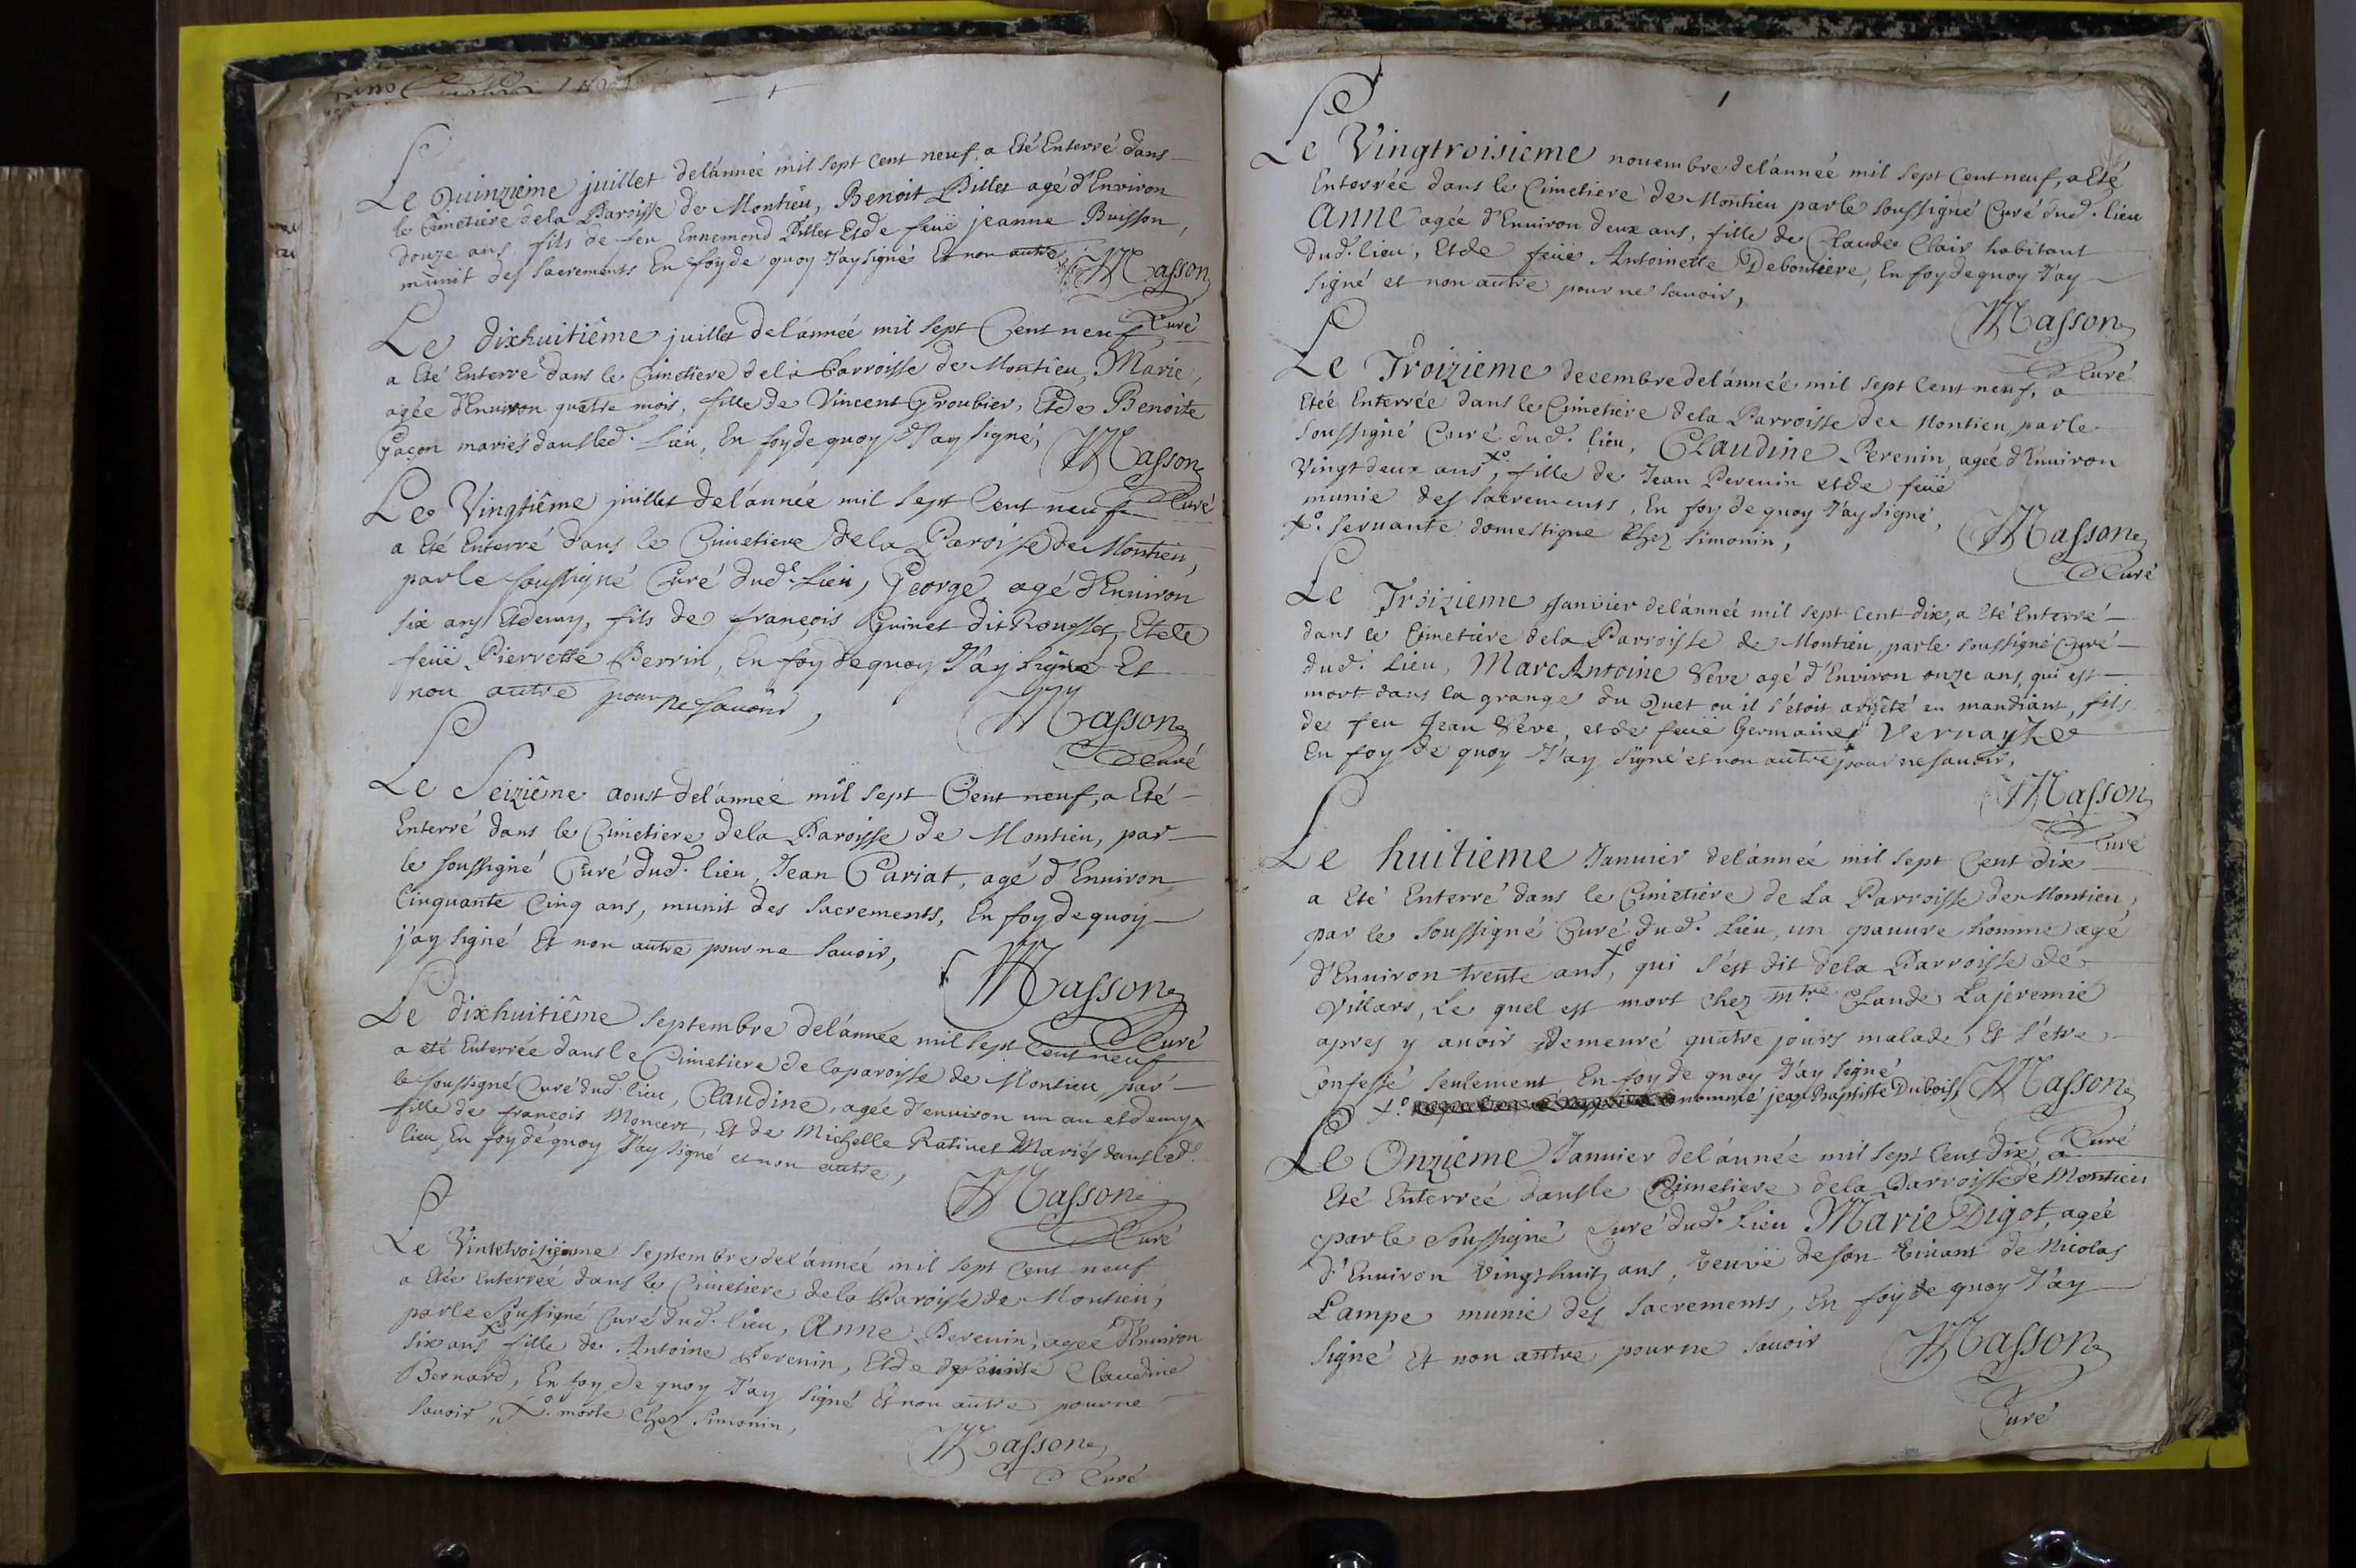 1
Le Quinziême juillet del'année mil sept Cent neuf, a Eté Enterré dans
le Cimetiere dela Paroisse de Montieu, Benoit Pillet agé d'Environ
douze ans fils de feu Ennemond Pillet Et de feüe jeanne Buisson,
munit des Sacrements En foy de quoy J'ay signé Et non autre
Masson
Curé
Le dixhuitiême juillet del'année mil sept Cent neuf
a Eté Enterré dans le Cimetiere dela Parroisse de Montieu, Marie,
agée d'Environ quatre mois, fille de Vincent Groubier, Et de Benoite
Façon mariés dansled. Lieu, En foy de quoy J'ay signé,
Masson
Curé
Le Vingtiême juillet del'année mil sept Cent neuf
a Eté Enterré dans le Cimetiere dela Paroisse de Montieu,
par le soussigné Curé dud. Lieu, George agé d'Environ
six ans Et demy, fils de françois Guinet dit Rousset, Et de
feüe Pierrette Perrin, En foy de quoy J'ay signé Et
non autre pour ne savoir,
Masson
Curé
Le Seiziême aoust del'année mil sept Cent neuf, a Eté
Enterré dans le Cimetiere dela Paroisse de Montieu, par
le soussigné Curé dud. lieu, Jean Pariat, agé d'Environ
Cinquante Cinq ans, munit des Sacrements, En foy de quoy
j'ay signé Et non autre pour ne savoir,
Masson
Curé
Le dixhuitiême septembre del'année mil sept Cent neuf
a eté Enterrée dans le Cimetiere de la paroisse de Montieu, par
le soussigné Curé dud. lieu, Claudine, agée d'environ un an et demy
fille de françois Moncert, Et de Michelle Rativet Mariés dans led.
lieu, En foy de quoy J'ay signé et non autre,
Masson
Curé
Le septembre del'année mil sept Cent neuf
a Etée Enterreé dans le Cimetiere dela Paroisse de Montieu,
par le soussigné Curé dud. lieu, Anne Perenin, agée d'Environ
six ans x fille de Antoine Perenin, Et de Claudine
Bernard, En foy de quoy J'ay signé Et non autre pour ne
savoir, xº. morte Chez Simonin,
Masson
Curé
1
Le Vingtroisieme nouembre del'année mil sept Cent neuf, a Eté
Enterrée dans le Cimetiere de Montieu par le soussigné Curé dud. lieu
Anne agée d'Environ deux ans, fille de Claude Clair habitant
dud. lieu, Et de feüe Antoinette Deboutiere, En foy de quoy J'ay
signé et non autre pour ne sauoir,
Masson
Curé
Le Troizieme decembre del'année mil sept Cent neuf, a
Eteé Enterrée dans le Cimetiere dela Parroisse de Montieu par le
soussigné Curé dud. lieu, Claudine Perenin, agée d'Enuiron
Vingt deux ans xº, fille de Jean Perenin et de feüe
munie des sacrements, En foy de quoy J'ay signé,
xº. seruante domestique Chez Simonin,
Masson
Curé
Le Troizieme Januier del'année mil sept Cent dix, a Eté Enterré
dans le Cimetiere dela Parroisse de Montieu, par le soussigné Curé
dud. Lieu, Marc Antoine Seve agé d'Environ onze ans, qui est
mort dans la grange du Quet ou il s'étoit arrêté en mandiant, fils
de feu Jean Sêve, et de feüe Germaine Vernayze
En foy de quoy J'ay signé et non autre pour ne sauoir,
Masson
Curé
Le huitieme Januier del'année mil sept Cent dix
a Eté Enterré dans le Cimetiere de La Parroisse de Montieu,
par le soussigné Curé dud. Lieu, un pauure homme agé
d'Enuiron trente ans xº, qui s'est dit dela Parroisse de
Villars, Le quel est mort Chez mtre Claude Lajeremie
apres y auoir demeuré quatre jours malade, Et s'être
Confessé seulement En foy de quoy J'ay signé
xº. nommé jean Baptiste Dubois,
Masson
Curé
Le Onzieme Januier del'année mil sept Cent dix, a
Eté Enterreé dans le Cimetiere dela Parroisse de Montieu
par le soussigné Curé dud. Lieu Marie Digot, agée
d'Enuiron Vingt huit ans, veuve de son viuant de Nicolas
Lampe munie des Sacrements, En foy de quoy J'ay
signé Et non autre pour ne sauoir
Masson
Curé